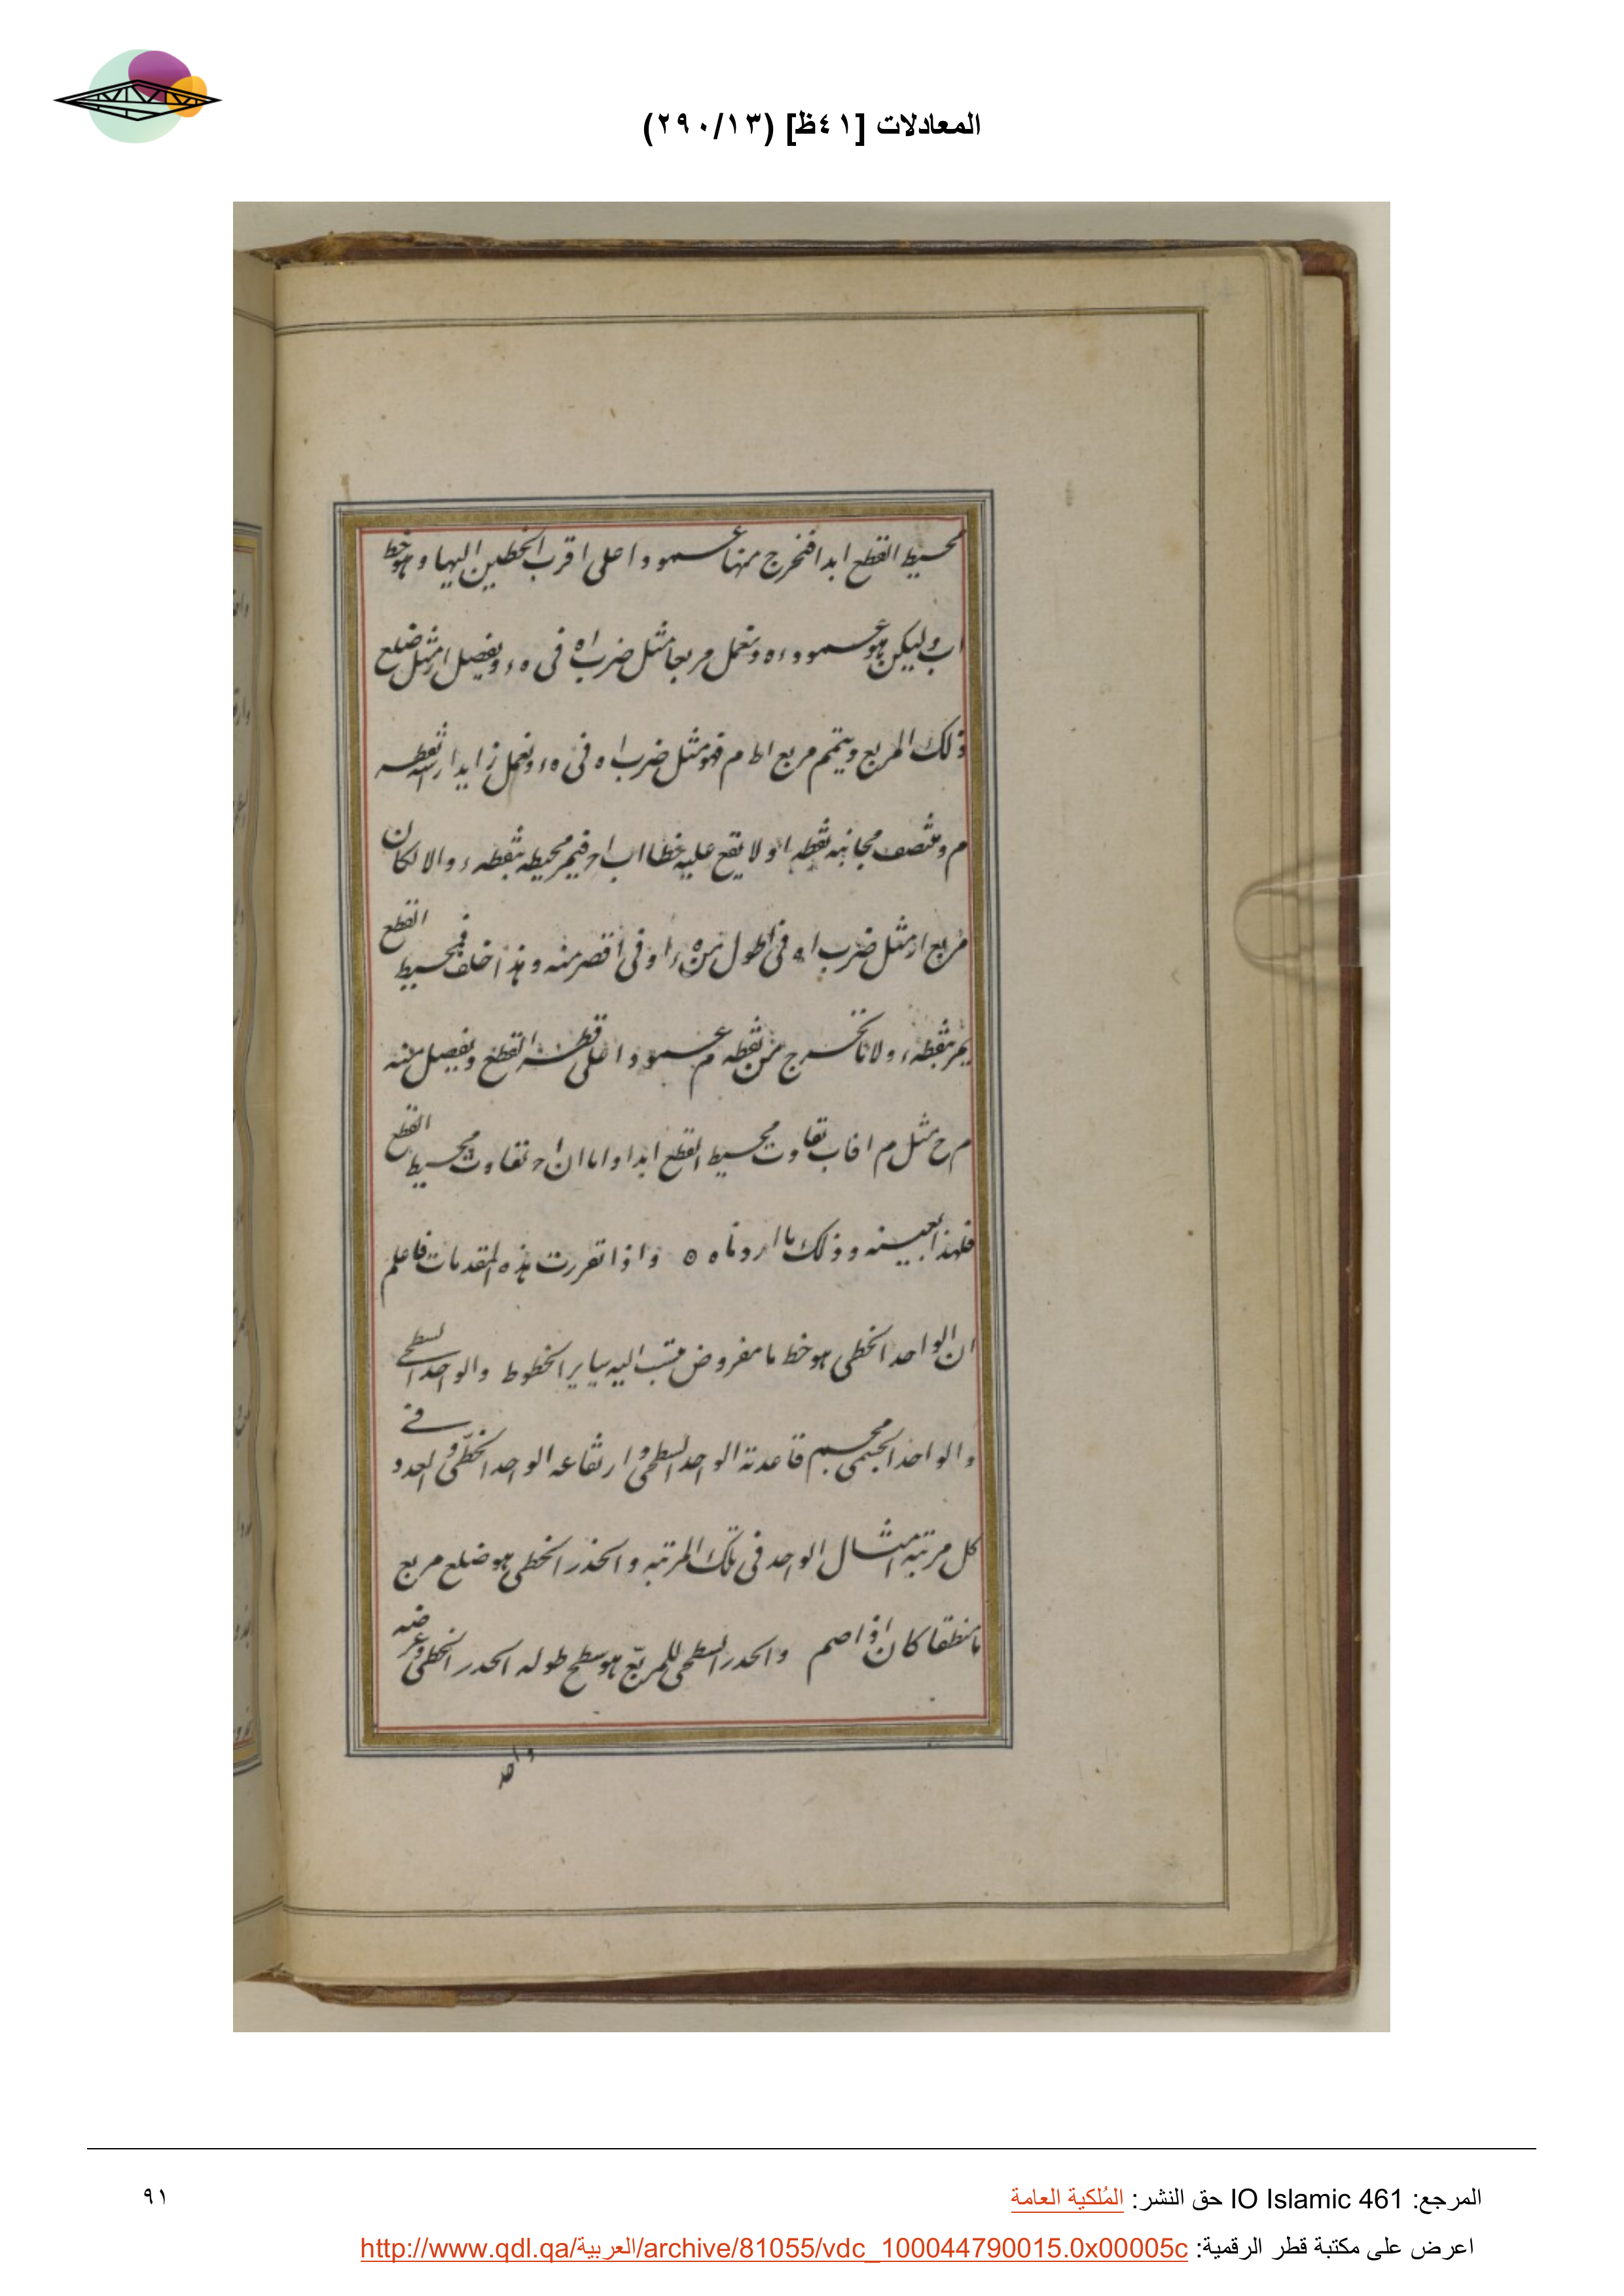 المعادلات [٤١ظ] (٢٩٠/١٣)
محيط القطع ابدا فنخرج منها عمودا على اقرب الخطين اليها وهو خط
اب وليكن هو عمود ءه ونعمل مربعا مثل ضرب اه فى ه ء ونفصل ار مثل ضلع
ذلك المربع ويتمم مربع اط م فهو مثل ضرب ا ه فى ه ء ونعمل زايدا راسه نقطه
م ومنتصف مجانبه نقطه ا ولا يقع عليه خطا اب ا ح فيمر محيطه بنقطه ء والا لكان
مربع ار مثل ضرب ا ه فى اطول من ه ء او فى اقصر منه وهذا خلف فمحيط القطع
يمر بنقطه ء ولانا نخرج من نقطه م عمودا على قطر القطع ونفصل منه
م ح مثل م ا فاب تفاوت محيط القطع ابدا واما ان ا ح تفاوت محيط القطع
فلهذا بعينه وذلك ما اردناه ه واذا تقررت هذه المقدمات فاعلم
ان الواحد الخطى هو خط ما مفروض ينسب اليه ساير الخطوط والواحد السطحے
والواحد الجسمى مجسم قاعدته الواحد السطحى وارتفاعه الواحد الخطّى والعدد فے
كل مرتبة امثال الواحد فى تلك المرتبه والجذر الخطى هو ضلع مربع
ما منطقا كان او اصم والحدر السطحى للمربّع هو سطح طوله الحدر الخطى وعرضه
واحد
المرجع: IO Islamic 461 حق النشر: المُلكية العامة
٩١
اعرض على مكتبة قطر الرقمية: http://www.qdl.qa/العربية/archive/81055/vdc_100044790015.0x00005c